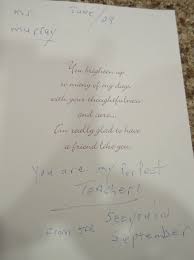 Mr
Murray
June/09
You brighten up
so many of my days
with your thoughtfulness
and care...
I'm really glad to have
a friend like you.
You are my Perfect
Teacher!
From the
September